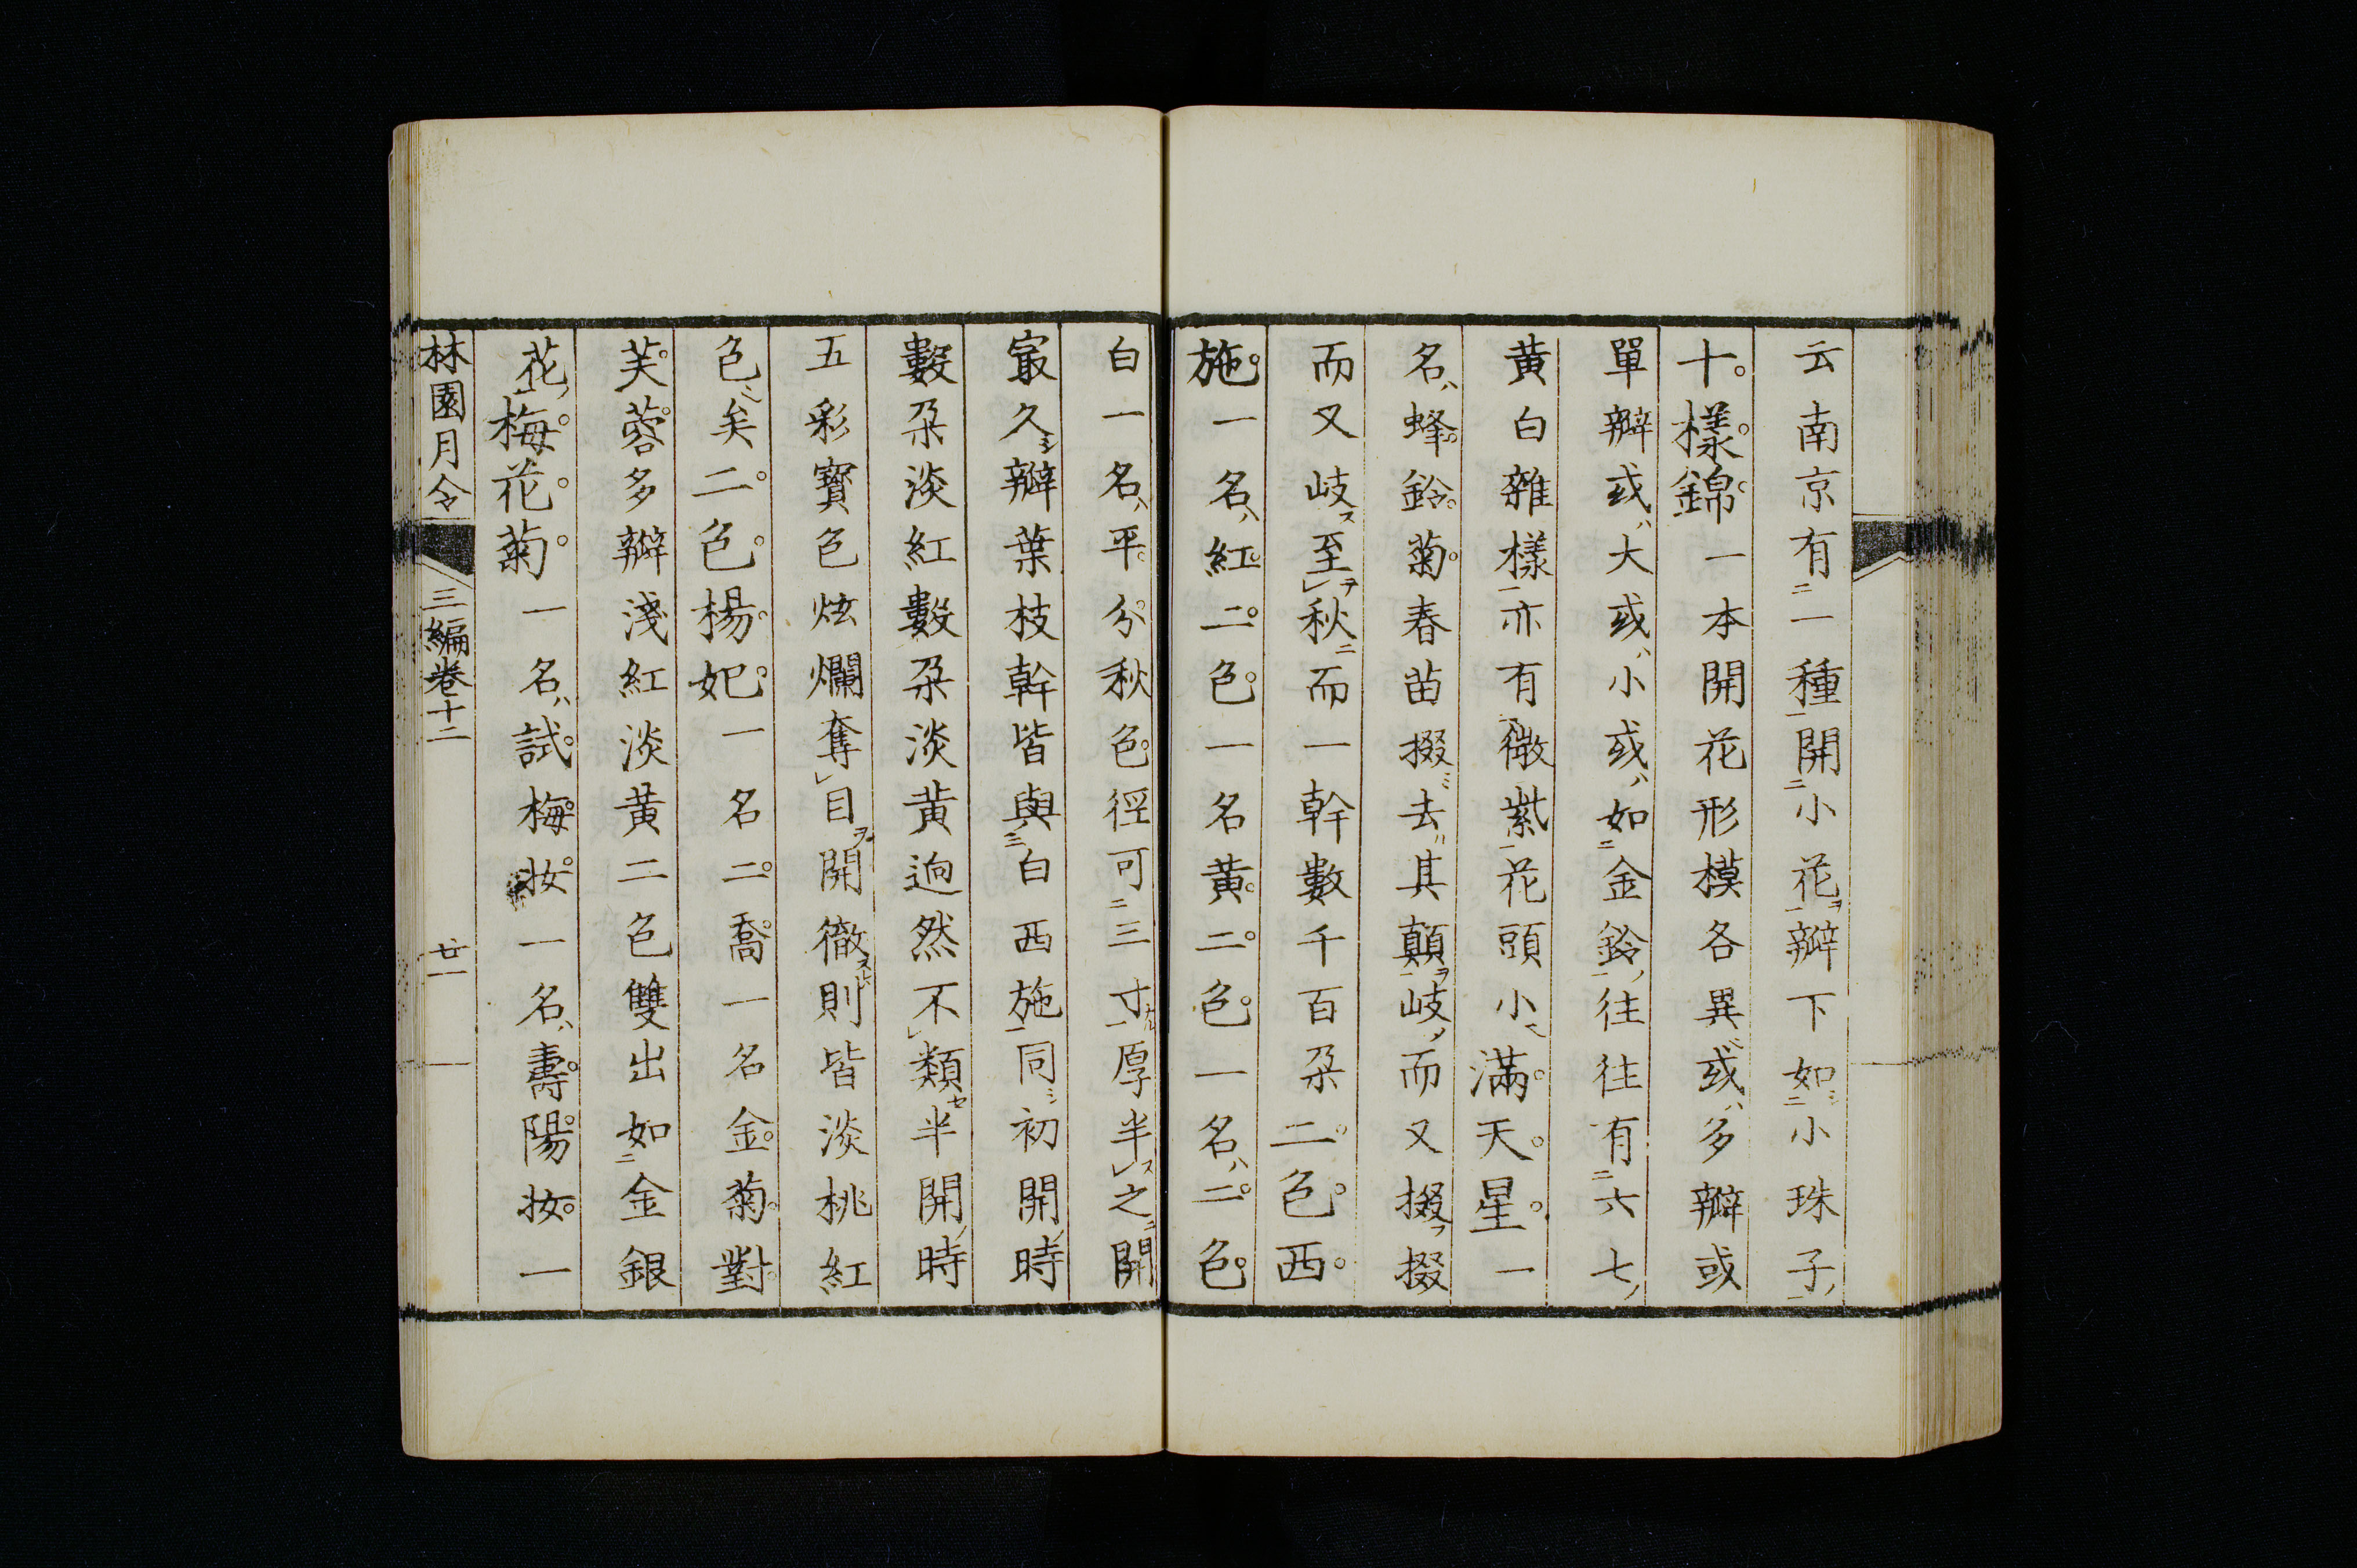 云南京有一種開小花瓣下如小珠子
十樣錦一本開花形模各異或多瓣或
單瓣或大或小或如金鈴往往有六七
黄白雜樣亦有微紫花頭小滿天星一
名蜂鈴菊春苗掇去其顛岐而又掇掇
而又岐至秋而一幹數千百朶二色西
施一名紅二色一名黄二色一名二色
白一名平分秋色徑可三寸厚半之開
㝡久瓣葉枝幹皆與白西施同初開時
數朶淡紅數朶淡黄逈然不類半開時
五彩寳色炫爛奪目開徹則皆淡桃紅
色矣二色楊妃一名二喬一名金菊對
芙蓉多瓣淺紅淡黄二色雙出如金銀
花梅花菊一名試梅妝一名壽陽妝一
林園月令 三編卷十二 廿一